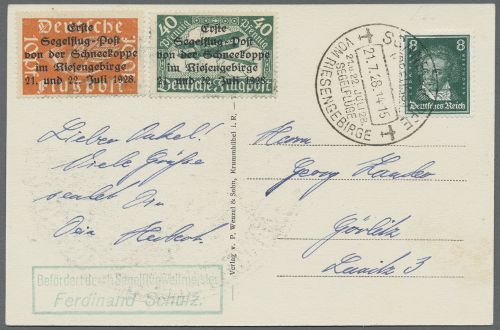 Deutsche
10
Flugpost
Erste
Segelflug-Post
von der Schneekoppe
im Riesengebirge
21. und 22. Juli 1928.
40 40
Deutsche Flugpost
Erste
Segelflug-Post
von der Schneekoppe
im Riesengebirge
21. und 22. Juli 1928.
21.7.28.4-15
21./22. JULI 28
SEGELFLÜGE
VOM RIESENGEBIRGE
8 8
Deutsches Reich
Lieber Onkel!
Viele Grüße
sendet Dir
Dein Herbert.
Verlag v. P. Wenzel & Sohn, Krummhübel i. R.
Herrn
Georg
Görlitz
3
Befördert durch Segelflugweltmeister
Ferdinand Schulz.